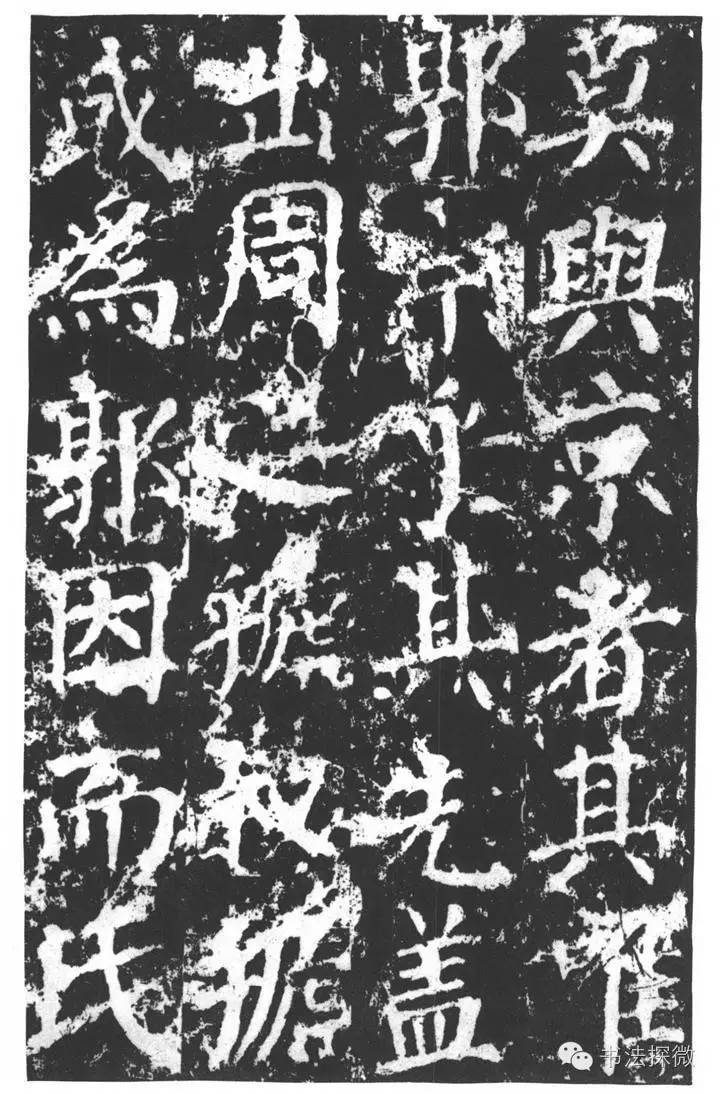 莫與京者其唯
郭宗乎其先盖
出周之虢叔虢
或為郭因而氏
书法探微